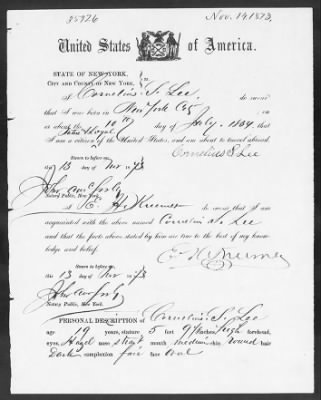 35926 Nov. 14. 1873.
United States of America.
STATE OF NEW-YORK,
CITY AND COUNTY OF NEW YORK, ss.
I Cornelius S. Lee do swear
that I was born in New York City on
or about the 10th day of July 1804, that
I am a citizen of the United States, and am about to travel abroad.
Cornelius S Lee
Sworn to before me
this 13 day Nov 1873
Notary Public, New York.
I do swear, that I am
acquainted with the above named Cornelius S. Lee
and that the facts above stated by him are true to the best of my know-
ledge and belief.
Sworn to before me
this 13 day of Nov 1873
Notary Public, New York.
PERSONAL DESCRIPTION OF Cornelius S. Lee
age 69 years, stature 5 feet 9½ inches high forehead,
eyes, Hazel nose straight mouth medium chin round hair
Dark complexion fair face Oval